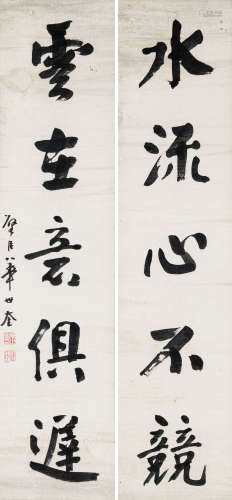 水流心不競
雲在意俱遲
華世奎